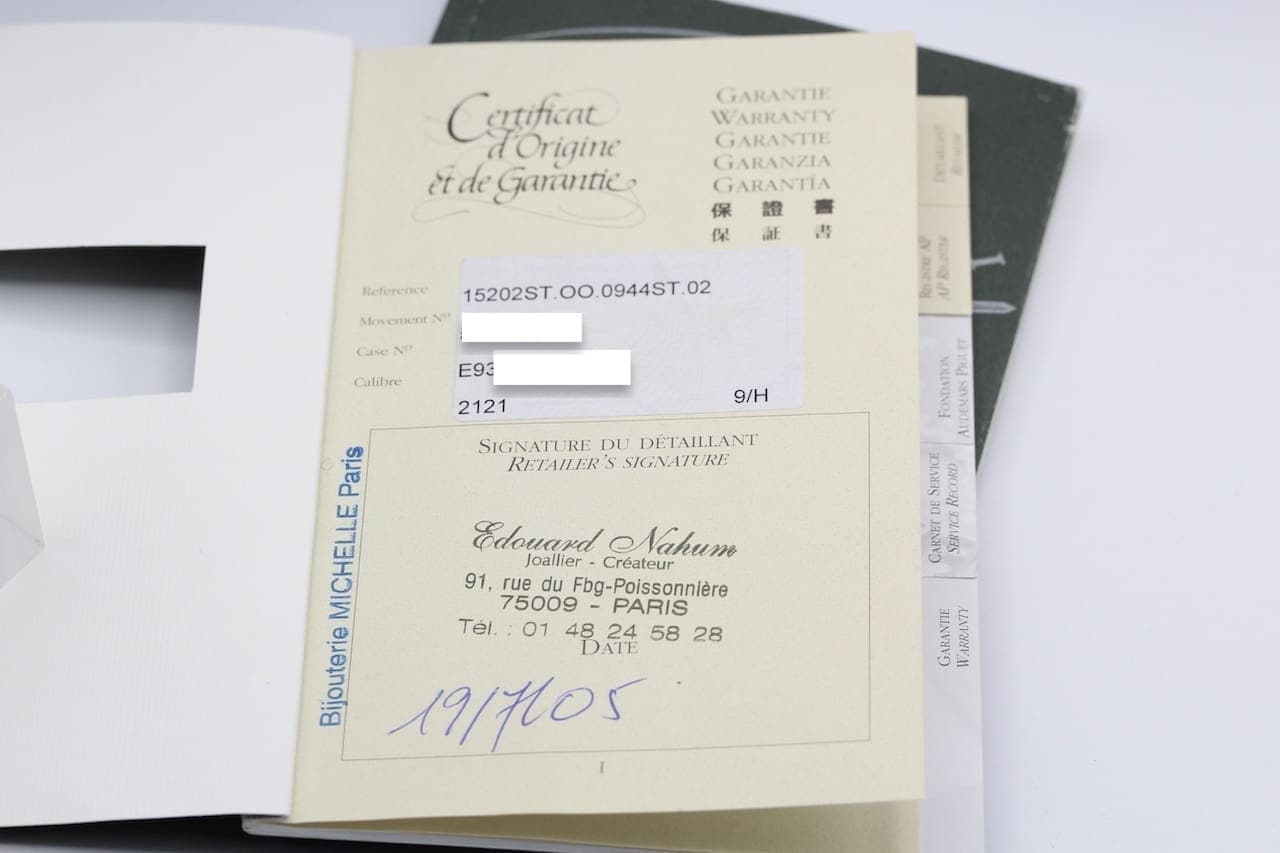 Certificat
d'Origine
et de Garantie
GARANTIE
WARRANTY
GARANTIE
GARANZIA
GARANTÍA
保 證 書
保 証 書
Reference 15202ST.OO.0944ST.02
Movement No
Case No E93
Calibre 2121 9/H
SIGNATURE DU DÉTAILLANT
RETAILER'S SIGNATURE
Edouard Nahum
Joallier - Créateur
91, rue du Fbg-Poissonnière
75009 - PARIS
Tél. : 01 48 24 58 28
DATE
19/7/05
I
Bijouterie MICHELLE Paris
DÉTAILLANT
RETAILER
REGISTRE AP
AP REGISTER
FONDATION
AUDEMARS PIGUET
CARNET DE SERVICE
SERVICE RECORD
GARANTIE
WARRANTY